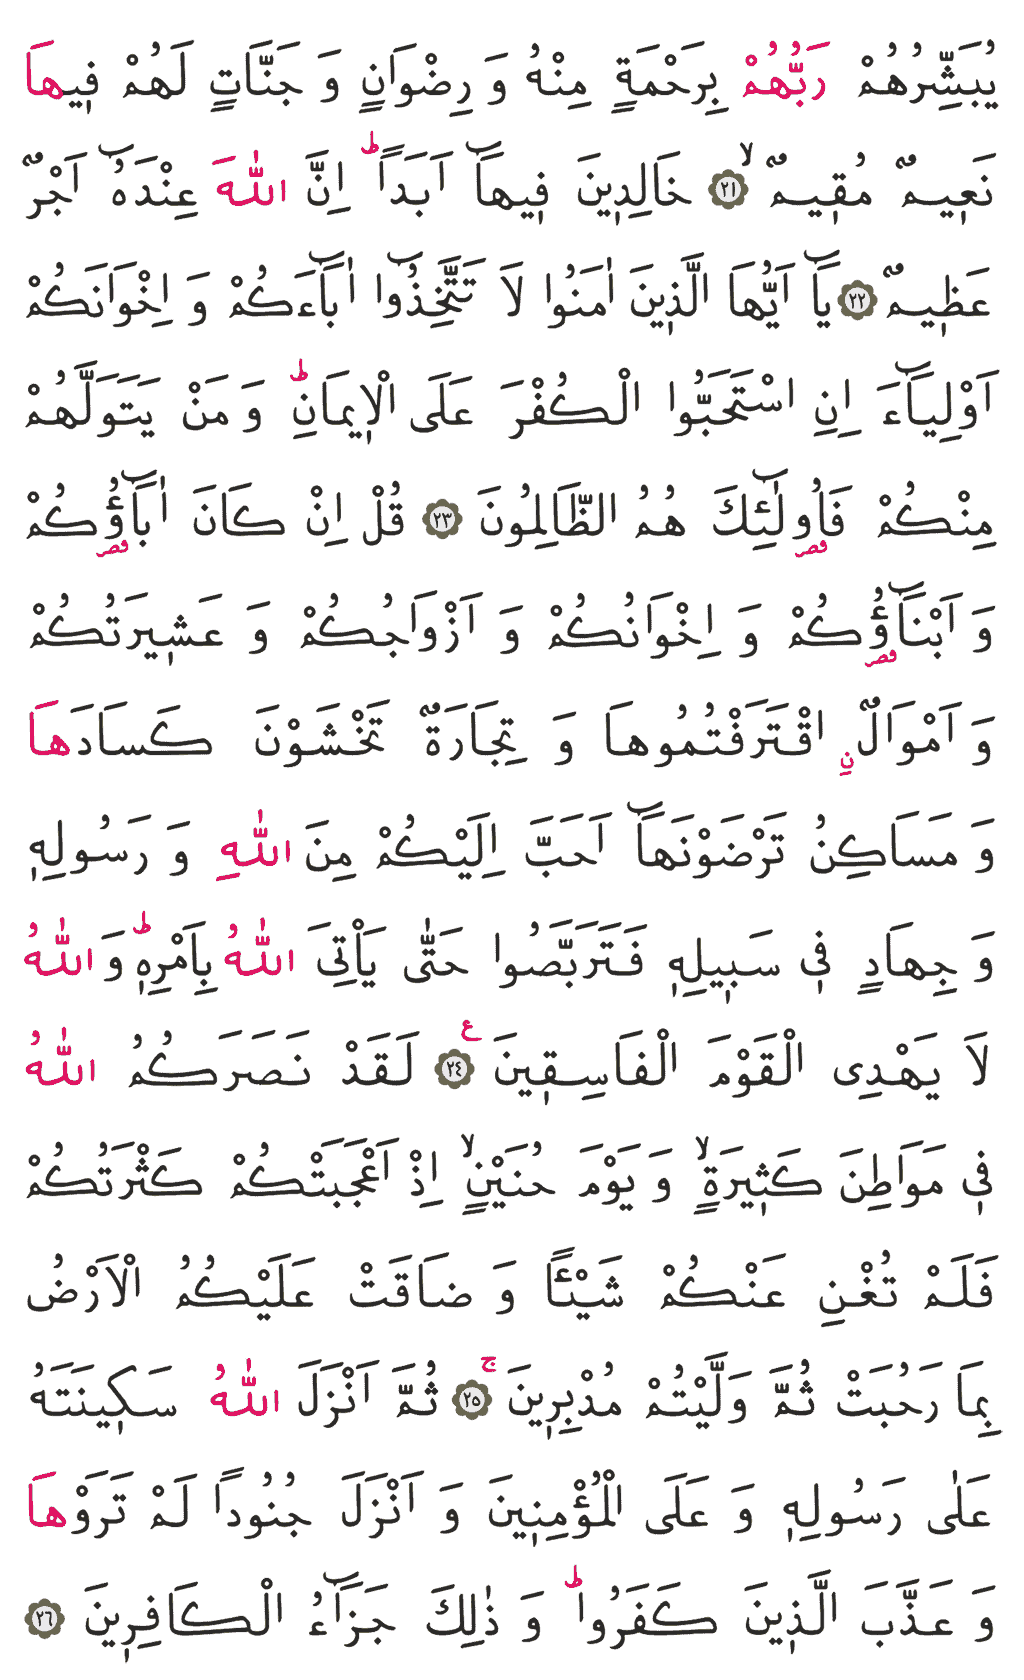 يُبَشِّرُهُمْ رَبُّهُمْ بِرَحْمَةٍ مِنْهُ وَ رِضْوَانٍ وَ جَنَّاتٍ لَهُمْ فٖيهَا
نَعٖيمٌ مُقٖيمٌۙ ﴿٢١﴾ خَالِدٖينَ فٖيهَآ اَبَداًؕ اِنَّ اللّٰهَ عِنْدَهُٓ اَجْرٌ
عَظٖيمٌ ﴿٢٢﴾ يَآ اَيُّهَا الَّذٖينَ اٰمَنُوا لَا تَتَّخِذُٓوا اٰبَآءَكُمْ وَ اِخْوَانَكُمْ
اَوْلِيَآءَ اِنِ اسْتَحَبُّوا الْكُفْرَ عَلَى الْاٖيمَانِؕ وَ مَنْ يَتَوَلَّهُمْ
مِنْكُمْ فَاُولَٓئِكَ هُمُ الظَّالِمُونَ ﴿٢٣﴾ قُلْ اِنْ كَانَ اٰبَآؤُكُمْ
قصر قصر
وَ اَبْنَآؤُكُمْ وَ اِخْوَانُكُمْ وَ اَزْوَاجُكُمْ وَ عَشٖيرَتُكُمْ
قصر
وَ اَمْوَالٌ نِ اقْتَرَفْتُمُوهَا وَ تِجَارَةٌ تَخْشَوْنَ كَسَادَهَا
وَ مَسَاكِنُ تَرْضَوْنَهَآ اَحَبَّ اِلَيْكُمْ مِنَ اللّٰهِ وَ رَسُولِهٖ
وَ جِهَادٍ فٖي سَبٖيلِهٖ فَتَرَبَّصُوا حَتّٰى يَاْتِىَ اللّٰهُ بِاَمْرِهٖؕ وَ اللّٰهُ
لَا يَهْدِى الْقَوْمَ الْفَاسِقٖينَ ࣖ ﴿٢٤﴾ لَقَدْ نَصَرَكُمُ اللّٰهُ
فٖي مَوَاطِنَ كَثٖيرَةٍۙ وَ يَوْمَ حُنَيْنٍۙ اِذْ اَعْجَبَتْكُمْ كَثْرَتُكُمْ
فَلَمْ تُغْنِ عَنْكُمْ شَيْـٔاً وَ ضَاقَتْ عَلَيْكُمُ الْاَرْضُ
بِمَا رَحُبَتْ ثُمَّ وَلَّيْتُمْ مُدْبِرٖينَۚ ﴿٢٥﴾ ثُمَّ اَنْزَلَ اللّٰهُ سَكٖينَتَهُ
عَلٰى رَسُولِهٖ وَ عَلَى الْمُؤْمِنٖينَ وَ اَنْزَلَ جُنُوداً لَمْ تَرَوْهَا
وَ عَذَّبَ الَّذٖينَ كَفَرُواؕ وَ ذٰلِكَ جَزَآءُ الْكَافِرٖينَ ﴿٢٦﴾